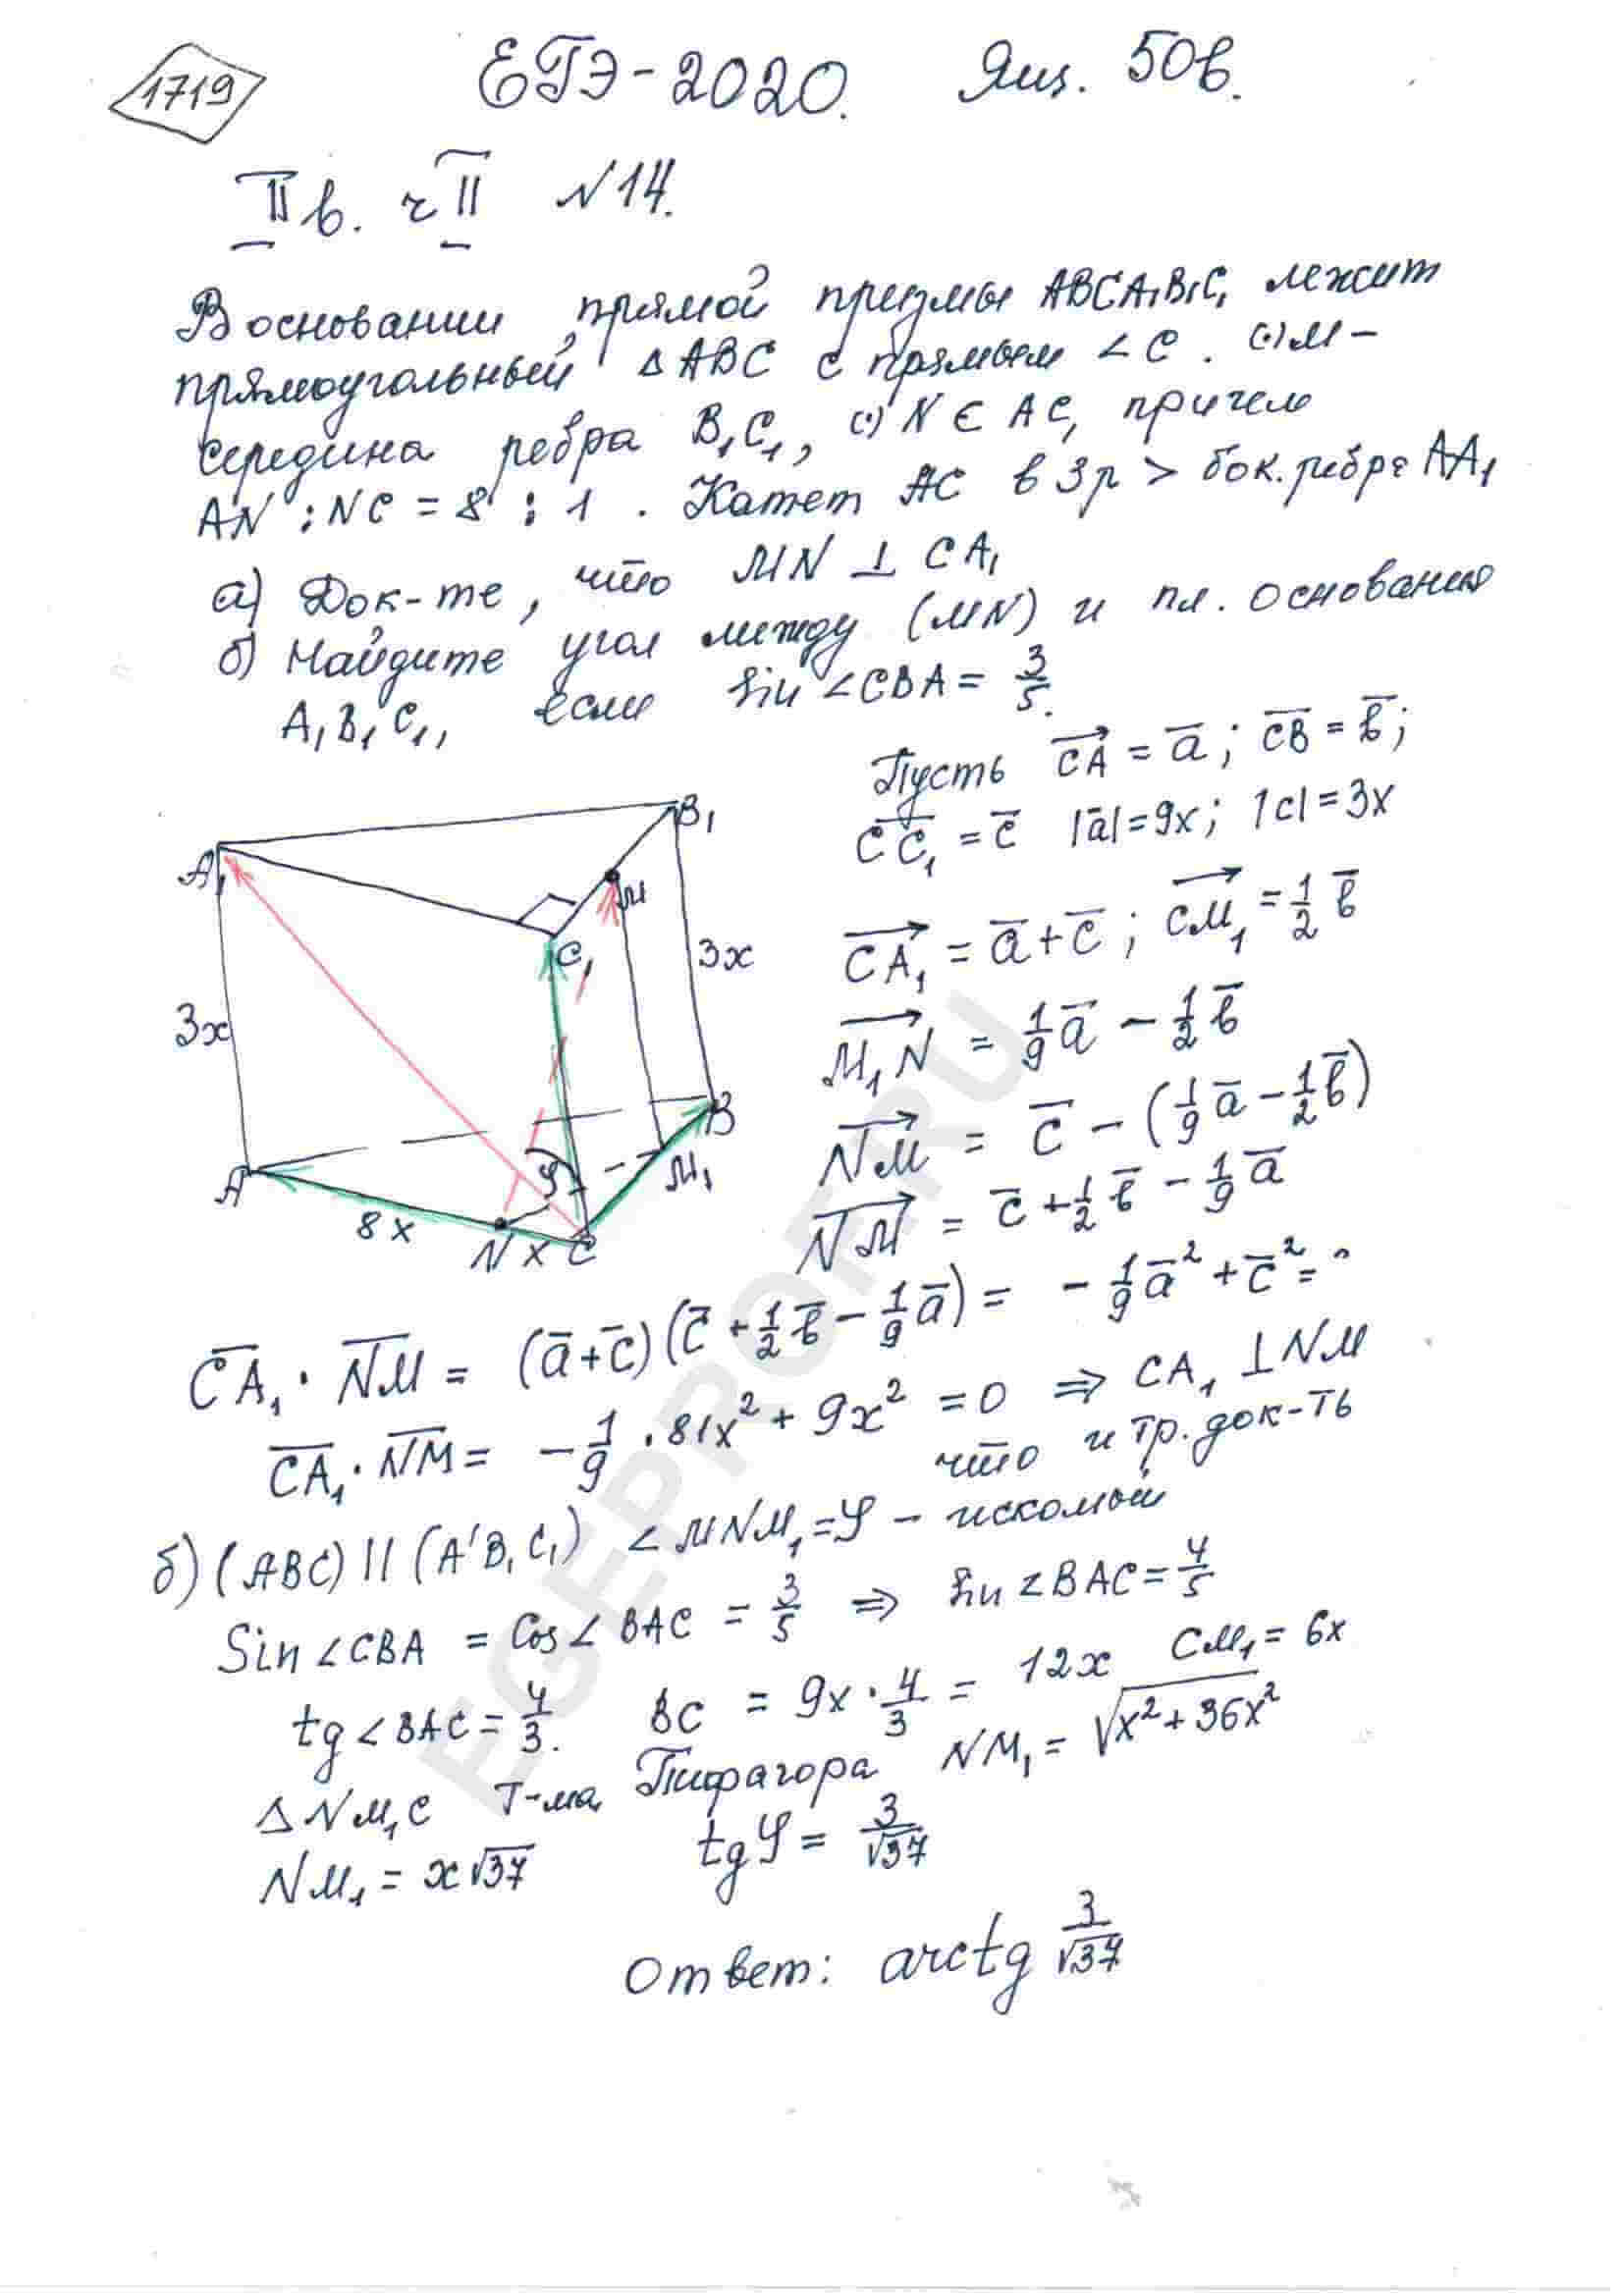 1719
ЕГЭ-2020. Ящ. 50в.
II в. ч II N 14.
В основании прямой призмы ABCA₁B₁C₁ лежит
прямоугольный △ABC с прямым ∠C. (·) M –
середина ребра B₁C₁, (·) N ∈ AC, причем
AN : NC = 8 : 1. Катет AC в 3 р > бок. ребра AA₁
а) Док-те, что MN ⊥ CA₁
б) Найдите угол между (MN) и пл. основания
A₁B₁C₁, если sin ∠CBA = 3/5.
Пусть CA = a; CB = b;
CC₁ = c |a| = 9x; |c| = 3x
CA₁ = a + c; CM₁ = 1/2 b
M₁N = 1/9 a − 1/2 b
NM = c − (1/9 a − 1/2 b)
NM = c + 1/2 b − 1/9 a
A₁
B₁
M
C₁
3x
3x
A
B
M₁
φ
8x
N
x
C
CA₁ · NM = (a + c)(c + 1/2 b − 1/9 a) = − 1/9 a² + c² = ?
CA₁ · NM = − 1/9 · 81x² + 9x² = 0 ⇒ CA₁ ⊥ NM
что и тр. док-ть
б) (ABC) || (A'B₁C₁) ∠MNM₁ = φ – искомый
Sin ∠CBA = Cos ∠BAC = 3/5 ⇒ sin ∠BAC = 4/5
tg ∠BAC = 4/3. BC = 9x · 4/3 = 12x CM₁ = 6x
△NM₁C Т-ма Пифагора NM₁ = √(x² + 36x²)
NM₁ = x√37 tg φ = 3/√37
Ответ: arctg 3/√37
EGEPROF.RU